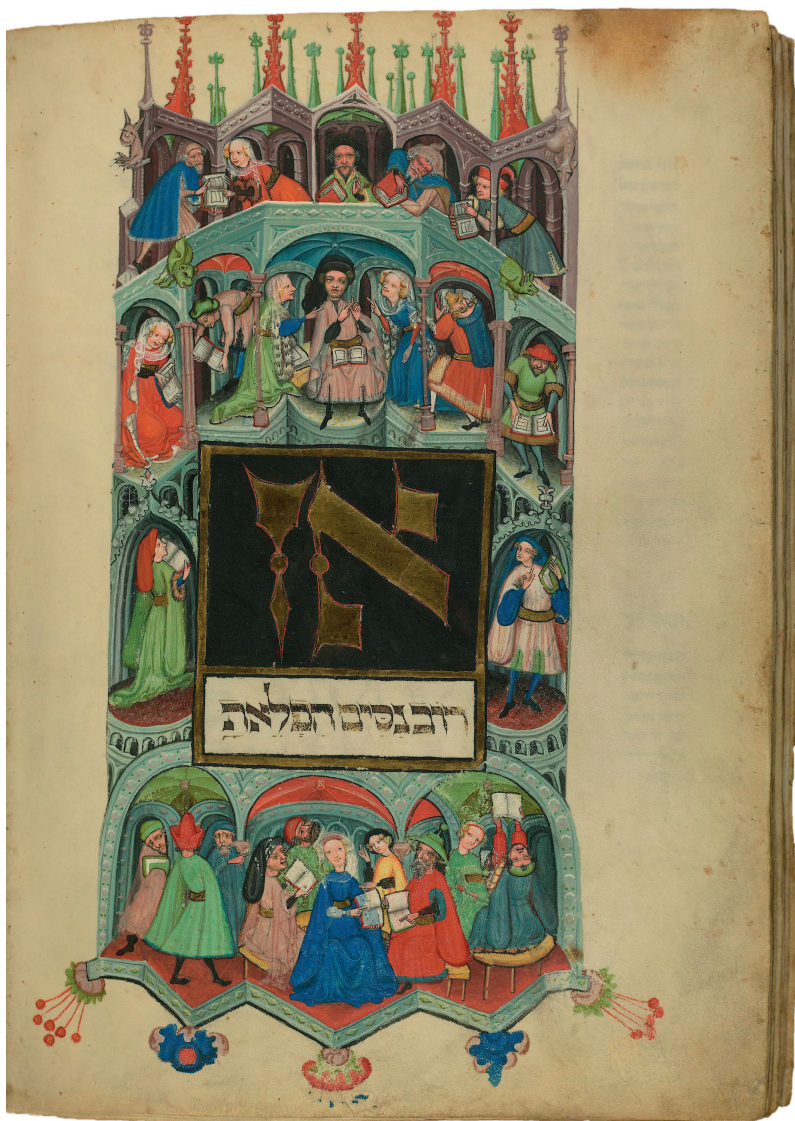 אז
רוב נסים הפלאת